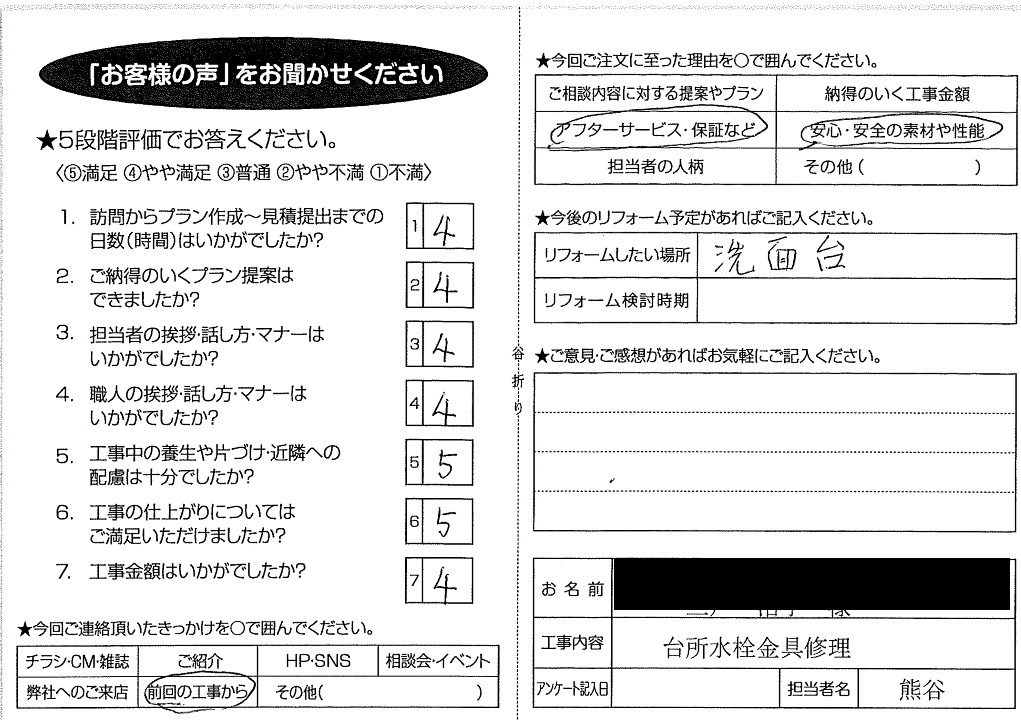 「お客様の声」をお聞かせください
★5段階評価でお答えください。
〈⑤満足 ④やや満足 ③普通 ②やや不満 ①不満〉
1. 訪問からプラン作成～見積提出までの
日数(時間)はいかがでしたか?
1 4
2. ご納得のいくプラン提案は
できましたか?
2 4
3. 担当者の挨拶・話し方・マナーは
いかがでしたか?
3 4
4. 職人の挨拶・話し方・マナーは
いかがでしたか?
4 4
5. 工事中の養生や片づけ・近隣への
配慮は十分でしたか?
5 5
6. 工事の仕上がりについては
ご満足いただけましたか?
6 5
7. 工事金額はいかがでしたか?
7 4
★今回ご連絡頂いたきっかけを〇で囲んでください。
チラシ・CM・雑誌 ご紹介 HP・SNS 相談会・イベント
弊社へのご来店 前回の工事から その他( )
谷折り
★今回ご注文に至った理由を〇で囲んでください。
ご相談内容に対する提案やプラン 納得のいく工事金額
アフターサービス・保証など 安心・安全の素材や性能
担当者の人柄 その他( )
★今後のリフォーム予定があればご記入ください。
リフォームしたい場所 洗面台
リフォーム検討時期
★ご意見・ご感想があればお気軽にご記入ください。
お名前
工事内容 台所水栓金具修理
アンケート記入日 担当者名 熊谷